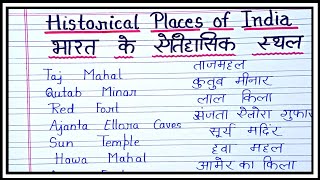 Historical Places of India
भारत के ऐतिहासिक स्थल
Taj Mahal ताजमहल
Qutab Minar कुतुब मीनार
Red Fort लाल किला
Ajanta Ellora Caves अजंता ऐलोरा गुफार
Sun Temple सूर्य मंदिर
Hawa Mahal हवा महल
आमेर का किला